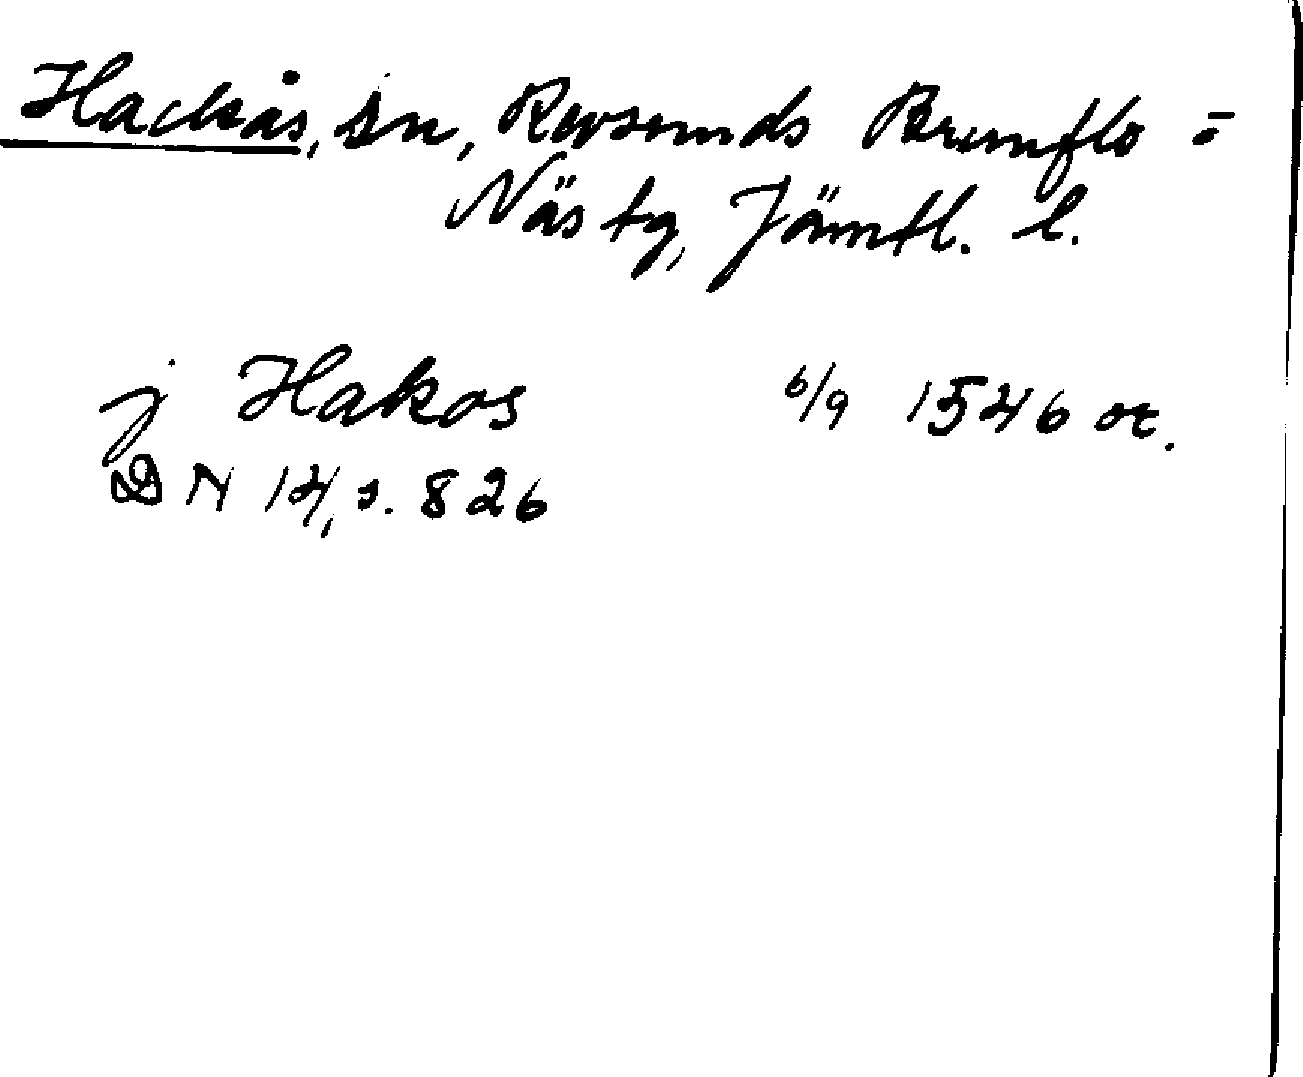 Hackås, sn, Revsunds Brunflo =
Näs tg, Jämtl. l.
j Hakos 6/9 1546 or.
DN 14, s. 826